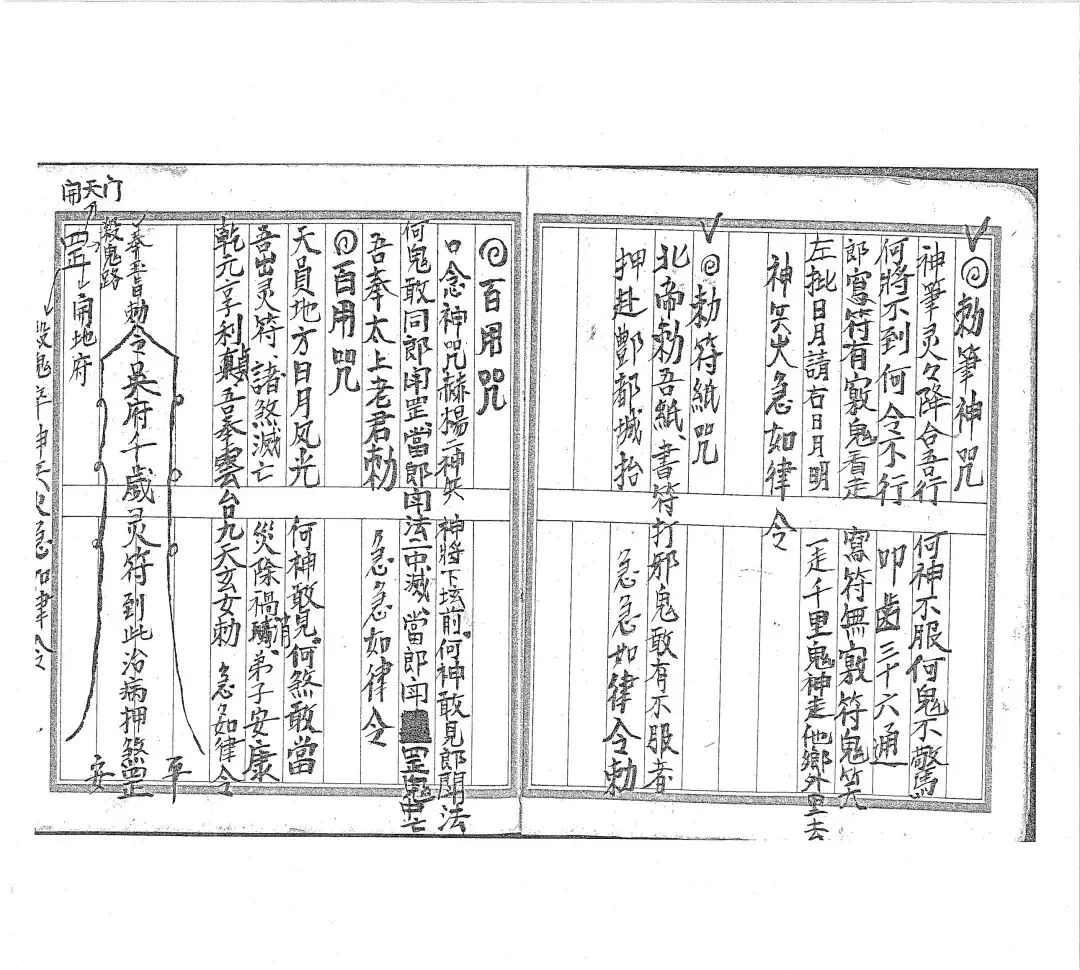 勅筆神咒
神筆灵々降台吾行 何神不服何鬼不驚
何將不到何令不行 叩齒三十六通
郎寫符有敦鬼看走 寫符無敦符鬼笑
左批日月請右日月明 一走千里鬼神走他鄉外里去
神兵火急如律令
勅符紙咒
北帝勅吾紙、書符打邪鬼敢有不服者
押赴酆都城抬 急急如律令勅
百用咒
口念神咒赫楊二神矣 神將下坛前何神敢見郎開法
何鬼敢同郎 罡、當郎 法一 滅、當郎 罡鬼
吾奉太上老君勅 急急如律令
百用咒
天員地方日月风光 何神敢見何煞敢當
吾出灵符、諸煞滅亡 災除禍消、弟子安康
乾元亨利 吾奉雲台九天玄女勅 急急如律令
奉玉旨勅令吳府千歲灵符到此治病押煞罡
平
安
開天门
殺鬼路
罡
開地府
殺鬼卒神兵火急如律令